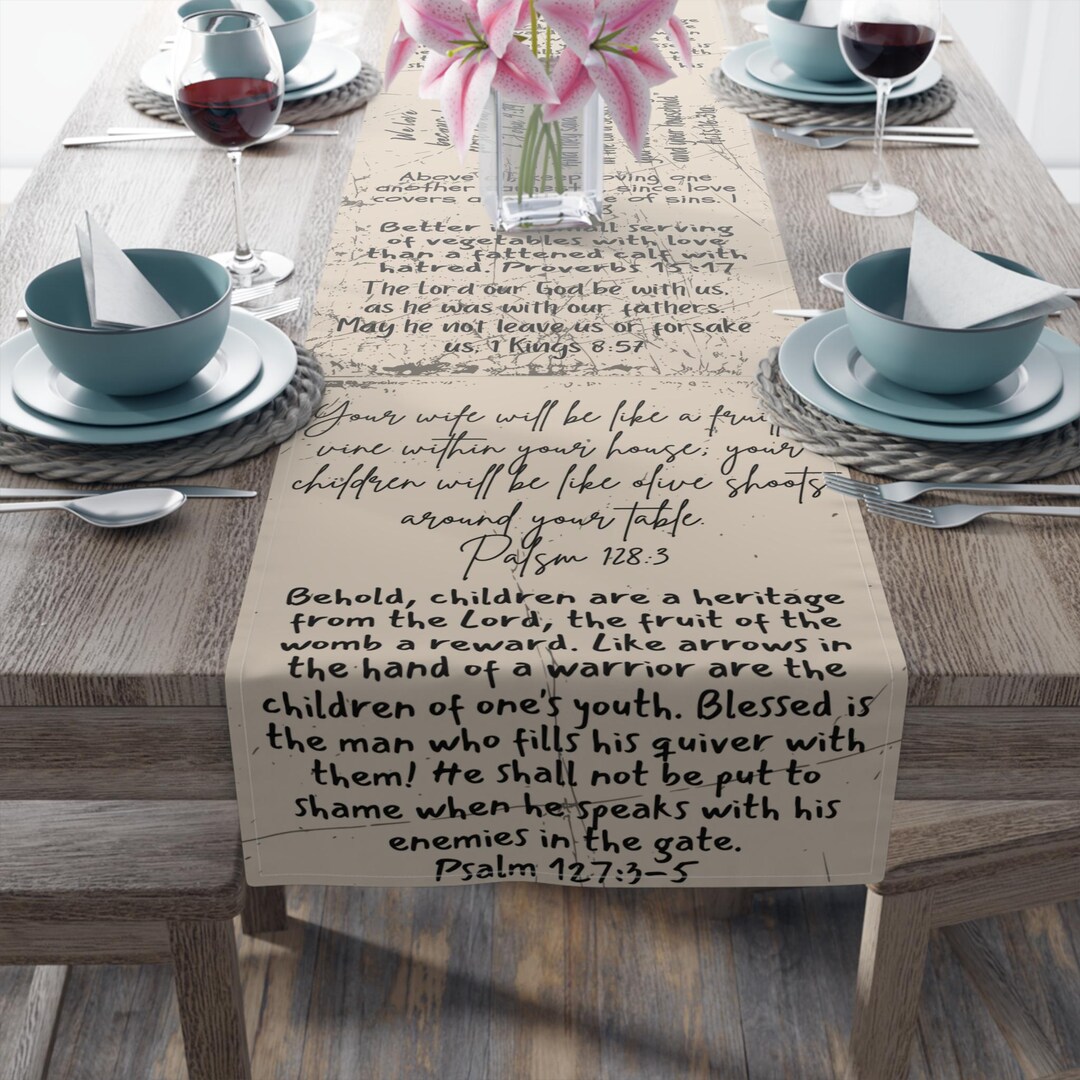 and your household
Acts 16:31
Above keep loving one
another since love
covers a of sins. 1
Better serving
of vegetables with love
than a fattened calf with
hatred. Proverbs 15:17
The Lord our God be with us,
as he was with our fathers.
May he not leave us or forsake
us, 1 Kings 8:57
Your wife will be like a
vine within your house; your
children will be like olive shoots
around your table.
Palsm 128:3
Behold, children are a heritage
from the Lord, the fruit of the
womb a reward. Like arrows in
the hand of a warrior are the
children of one's youth. Blessed is
the man who fills his quiver with
them! He shall not be put to
shame when he speaks with his
enemies in the gate.
Psalm 127:3-5